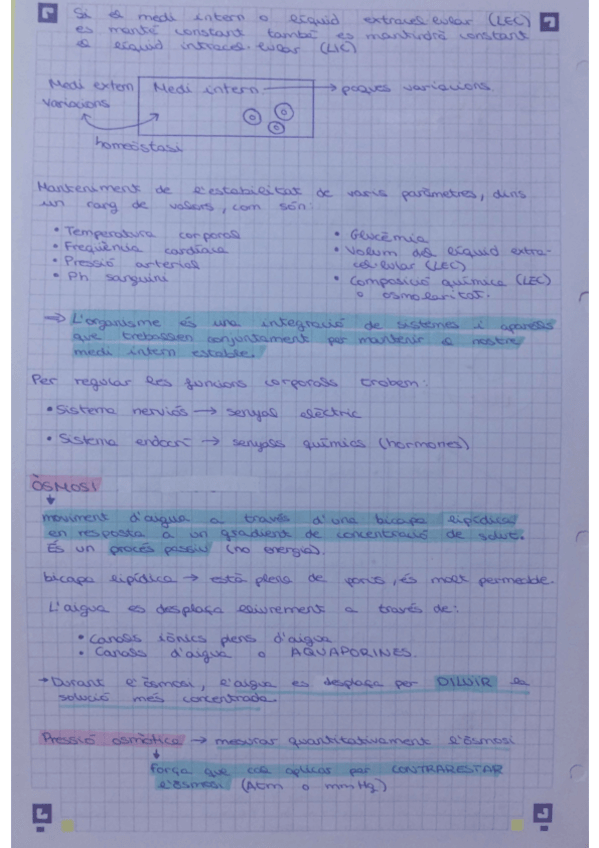 Si el medi intern o líquid extracel·lular (LEC)
es manté constant també es mantindrà constant
el líquid intracel·lular (LIC)
Medi extern
variacions
Medi intern → poques variacions
homeòstasi
Manteniment de l'estabilitat de varis paràmetres, dins
un rang de valors, com són:
• Temperatura corporal
• Freqüència cardíaca
• Pressió arterial
• Ph sanguini
• Glucèmia
• Volum del líquid extra-
cel·lular (LEC)
• Composició química (LEC)
o osmolaritat.
⇒ L'organisme és una integració de sistemes i aparells
que treballen conjuntament per mantenir el nostre
medi intern estable.
Per regular les funcions corporals trobem:
• Sistema nerviós → senyal elèctric
• Sistema endocrí → senyals químics (hormones)
ÒSMOSI
moviment d'aigua a través d'una bicapa lipídica
en resposta a un gradient de concentració de solut.
És un procés passiu (no energia).
bicapa lipídica → està plena de ponts, és molt permeable.
L'aigua es desplaça lliurement a través de:
• Canals iònics plens d'aigua
• Canals d'aigua o AQUAPORINES.
→ Durant l'òsmosi, l'aigua es desplaça per DILUIR la
solució més concentrada.
Pressió osmòtica → mesurar quantitativament l'òsmosi
força que cal aplicar per CONTRARESTAR
l'òsmosi (Atm o mmHg)